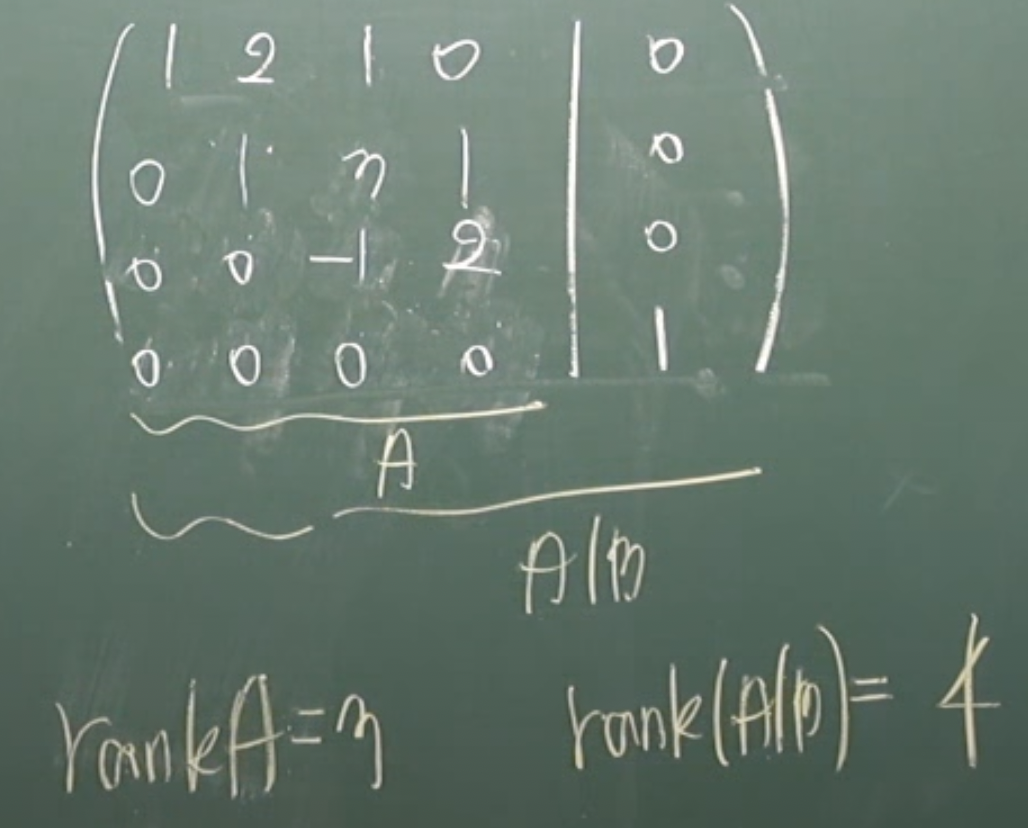 1 2 1 0 | 0
0 1 3 1 | 0
0 0 -1 2 | 0
0 0 0 0 | 1
A
A|B
rankA=3
rank(A|B)=4